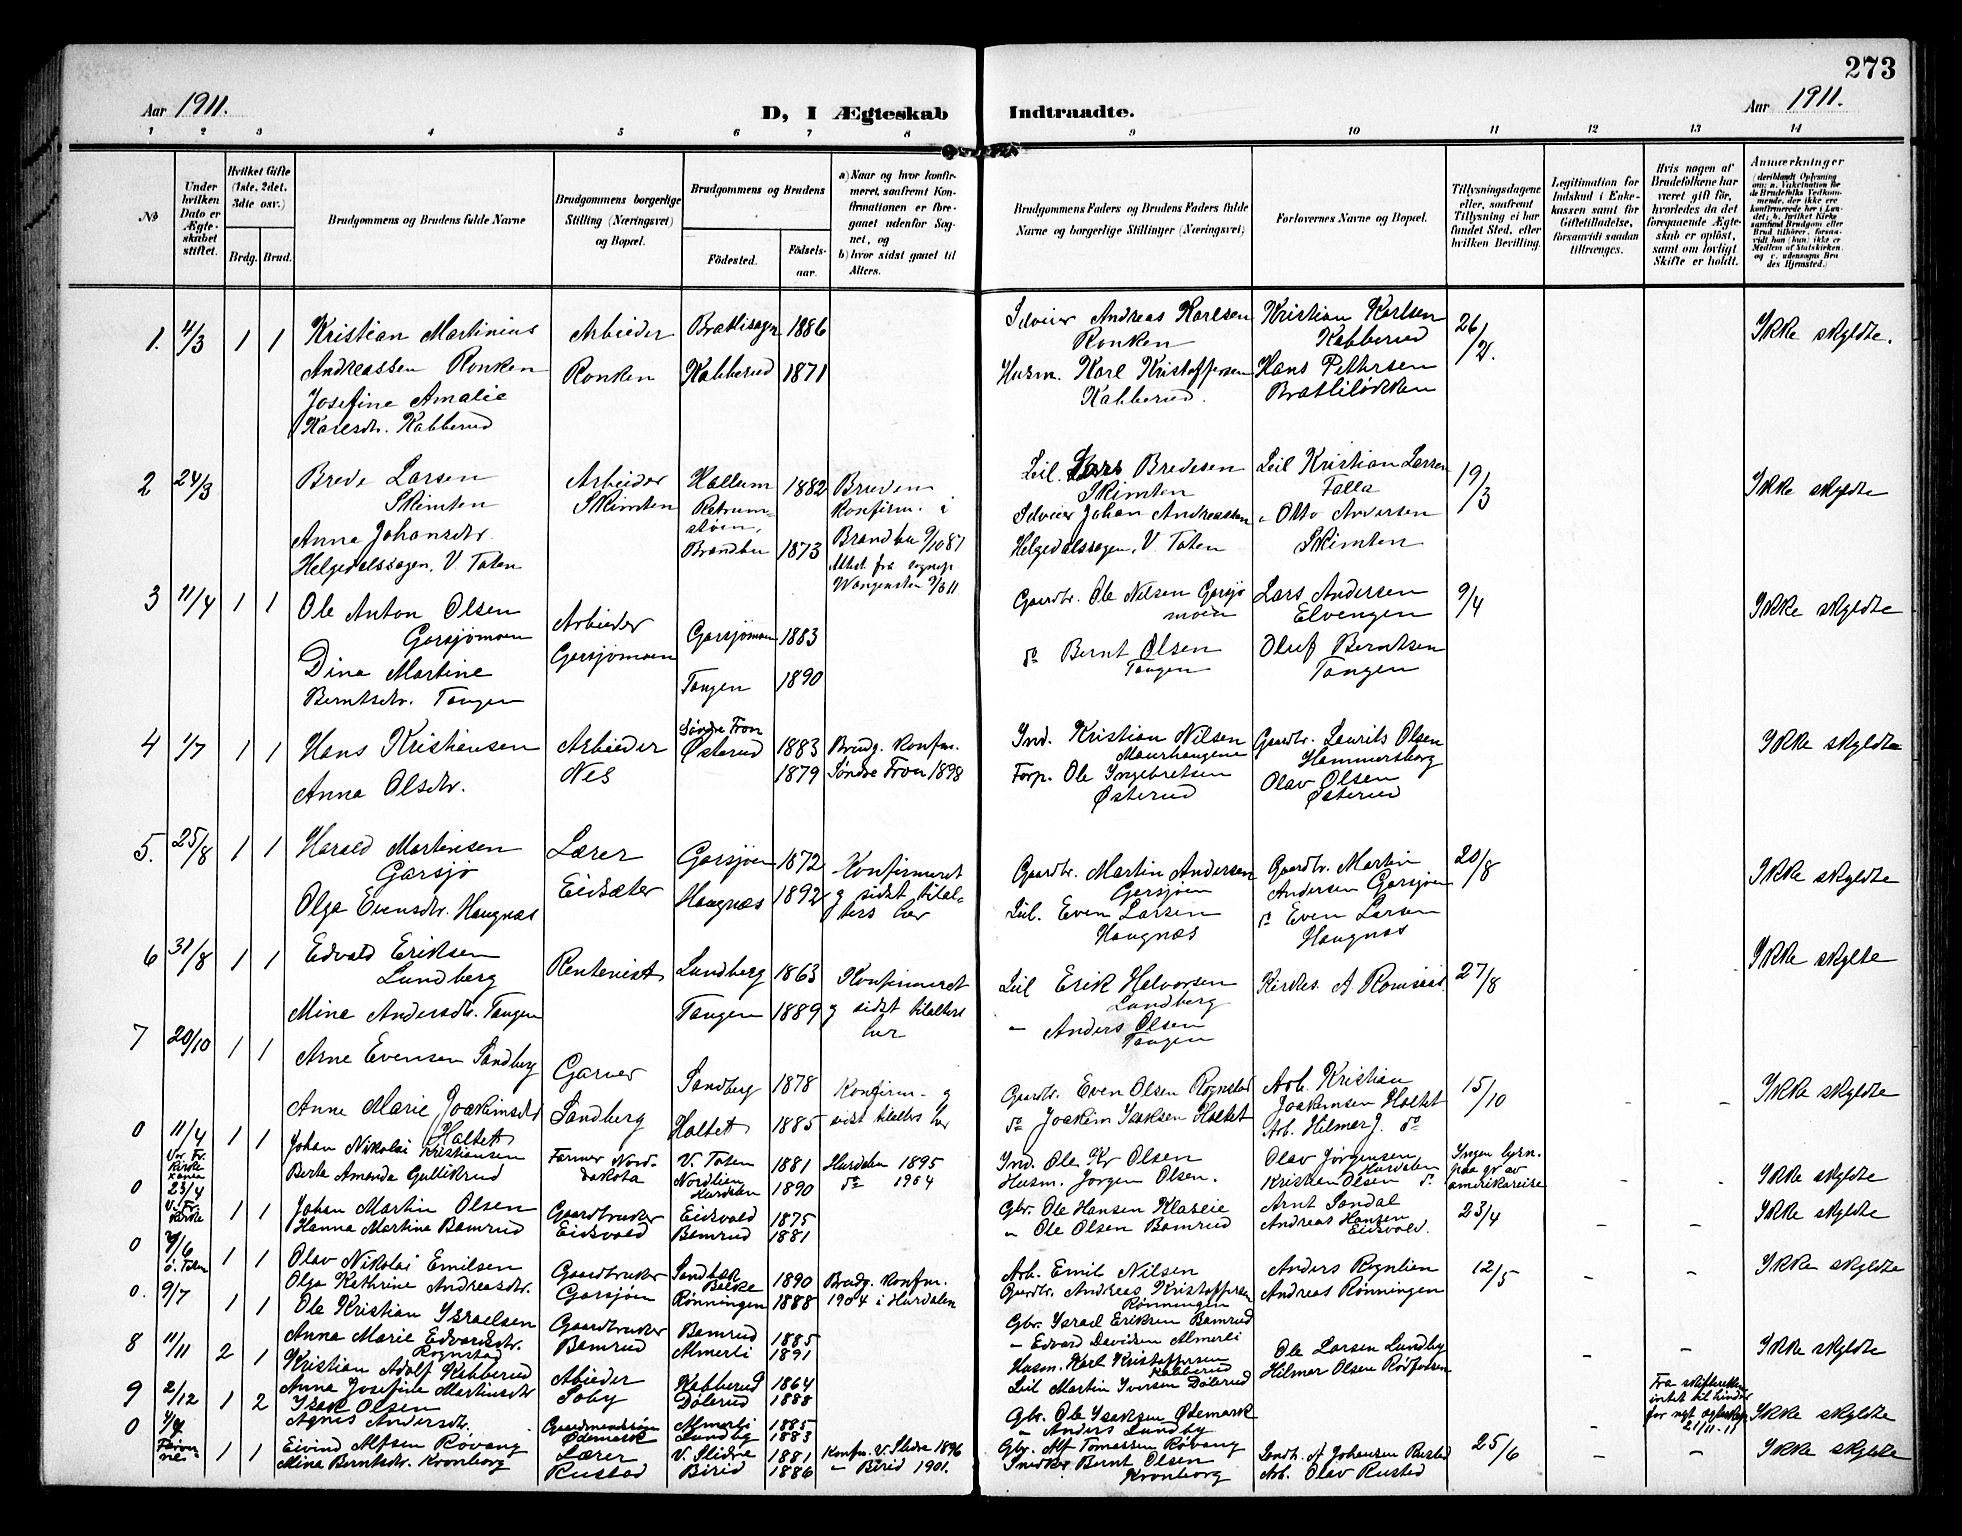 273
Aar 1911.
D, I Ægteskab Indtraadte.
Aar 1911.
1 2 3 4 5 6 7 8 9 10 11 12 13 14
No
Under hvilken Dato er Ægteskabet stiftet.
Hvilket Gifte (1ste, 2det, 3die osv.)
Brdg. Brud.
Brudgommens og Brudens fulde Navne
Brudgommens borgerlige Stilling (Næringsvei) og Bopæl.
Brudgommens og Brudens
Fødested. Fødselsaar.
a) Naar og hvor konfirmeret, saafremt Konfirmationen er foregaaet udenfor Sognet, og
b) hvor sidst gaaet til Alters.
Brudgommens Faders og Brudens Faders fulde Navne og borgerlige Stillinger (Næringsvei)
Forlovernes Navne og Bopæl.
Tillysningsdagene eller, saafremt Tillysning ei har fundet Sted, efter hvilken Bevilling.
Legitimation for Indskud i Enkekassen samt for Giftetilladelse, forsaavidt saadan tiltrænges.
Hvis nogen af Brudefolkene har været gift før, hvorledes da det foregaaende Ægteskab er opløst, samt om lovligt Skifte er holdt.
Anmærkninger
1. 4/3 1 1
Kristian Martinius
Andreassen Ronken
Josefine Amalie
Karlsdtr. Kabberud
Arbeider
Ronken
Brattisogn 1886
Kabberud 1871
Selveier Andreas Karlsen
Ronken
Husm. Karl Kristoffersen
Kabberud.
Kristian Karlsen
Kabberud
Hans Pettersen
Brattiløkken
26/2.
Ikke skyldte.
2 24/3
Brede Larsen
Skimten
Anna Johansdtr.
Helgedalssagen, V. Toten
Arbeider
Skimten
Hallum 1882
Brandbu 1873
Bruden
konfirm. i
Brandbu 9/10 87
Leil. Lars Bredesen
Skimten
Selveier Johan Andreassen
Helgedalssagen, V. Toten
Leil Kristian Larsen
Falla
" Otto Andersen
Skimten
19/3
Ikke skyldte
3 11/4 1 1
Ole Anton Olsen
Garsjømoen
Dina Martine
Berntsdtr. Tangen
Arbeider
Garsjømoen
Garsjømoen 1883
Tangen 1890
Gaardbr. Ole Nilsen Garsjø
moen
do Bernt Olsen
Tangen
Lars Andersen
Elvengen
Oluf Berntsen
Tangen
9/4
Ikke skyldte
4 1/7 1 1
Hans Kristiansen
Anna Olsdtr.
Arbeider
Nes
Søndre Fron
Østerud 1883
1879
Brudg. konfm.
Søndre Fron 1898
Ind. Kristian Nilsen
Maurhaugene
Forp. Ole Ingebretsen
Østerud
Gaardbr. Laurits Olsen
Hammersborg
Olav Olsen
Østerud
Ikke skyldte
5. 25/8 1 1
Harald Martinsen
Garsjø
Olga Evensdtr. Haugnæs
Lærer
Eidsæter
Garsjøen 1872
Haugnæs 1892
Konfirmeret
g sidst tilal-
ters her
Gaardbr. Martin Andersen
Garsjøen
Leil. Even Larsen
Haugnæs
Gaardbr. Martin
Andersen Garsjøen
do Even Larsen
Haugnæs
20/8
Ikke skyldte
6 31/8 1 1
Edvald Eriksen
Lundberg
Mina Andersdtr. Tangen
Rentenist
Lundberg 1863
Tangen 1889
Konfirmeret
g sidst tilalters
her
Leil Erik Helvorsen
Lundberg
" Anders Olsen
Tangen
Kirkes. A Romsaas.
27/8
Ikke skylte
7 20/10 1 1
Arne Evensen Sandberg
Anne Marie Joakimsdtr
Haltet
Garver
Sandberg
Sandberg 1878
Haltet 1885
Konfirm. g
sidst tilalters her
Gaardbr. Even Olsen Rognstad
do Joakim Isaksen Haltet
Arb. Kristian
Joakimsen Haltet
Arb. Hilmer J. do
15/10
Ikke skyldte
0 11/4 1 1
Vor Fr. Kirke
Johan Nikolai Kristiansen
Berte Amanda Gullikrud
Farmer Nord-
dakota
V. Toten 1881
Nordlien
Hurdalen 1890
Hurdalen 1895
do 1904
Ind. Ole Kr Olsen
Husm. Jørgen Olsen.
Olav Jørgensen
Hurdalen
Kristian Olsen do
Ingen lysn.
paa gr av
amerikareise
Ikke skyldte
0 23/4 1 1
V. Fr. Kirke
Johan Martin Olsen
Hanna Martina Bamrud
Gaardbruker
Eidsvold
Eidsvold 1875
Bamrud 1881
Gbr. Ole Hansen Klaseie
" Ole Olsen Bamrud
Arnt Sandal
Andreas Hansen
Eidsvold.
23/4
Ikke skyldte
0 1 1
Ö. Toten
Olav Nikolai Emilsen
Olga Kathrine Andreasdtr.
Gaardbruker
Garsjøen
Sandbæk
Balke 1890
Rønningen 1888
Brudg. konfm.
1904 i Hurdalen
Arb. Emil Nilsen
Gardbr. Andreas Kristoffersen
Rønningen
Anders Rognlien
Andreas Rønningen
12/5
Ikke skyldte
0. 9/7 1 1
Ole Kristian Israelsen
Anna Marie Edvardsdtr.
Rognstad
Gaardbruker
Bamrud
Bamrud 1885
Almerli 1891
Gbr. Israel Eriksen Bamrud
" Edvard Davidsen Almerli
8 11/11 2 1
Kristian Adolf Kabberud
Anna Josefine Martinsdtr
Abieder
Soby
Kabberud 1864
Dølerud 1888
Husm. Karl Kristoffersen
Kabberud
Leil Martin Iversen Dølerud
Ole Larsen Lundby
Hilmer Olsen Rødfossen
Ikke skyldte
9 2/12 1 2
Isak Olsen
Agnes Andersdtr.
Gaardmandssøn
Ødemark
Almerli 1885
Lundby 1883
Gbr. Ole Isaksen Ødemark
" Anders Lundby
Fra skifteretten
intet til hinder
for nyt egteskap
21/11-11
Ikke skyldte
0 1 1
Eivind Alfsen Røvang
Mina Berntsdtr. Kronborg
Lærer
Rustad
V. Slidre 1881
Birid 1886
Konfm. V. Slidre 1896
" Birid 1901.
Gbr. Alf Tomassen Røvang
Snedker Bernt Olsen
Kronborg
Landh. A Johansen Rustad
Arb. Olav Rustad
25/6
Ikke skyldte